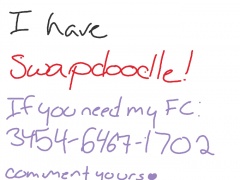 I have
Swapdoodle!
If you need my FC:
3454-6467-1702
comment yours